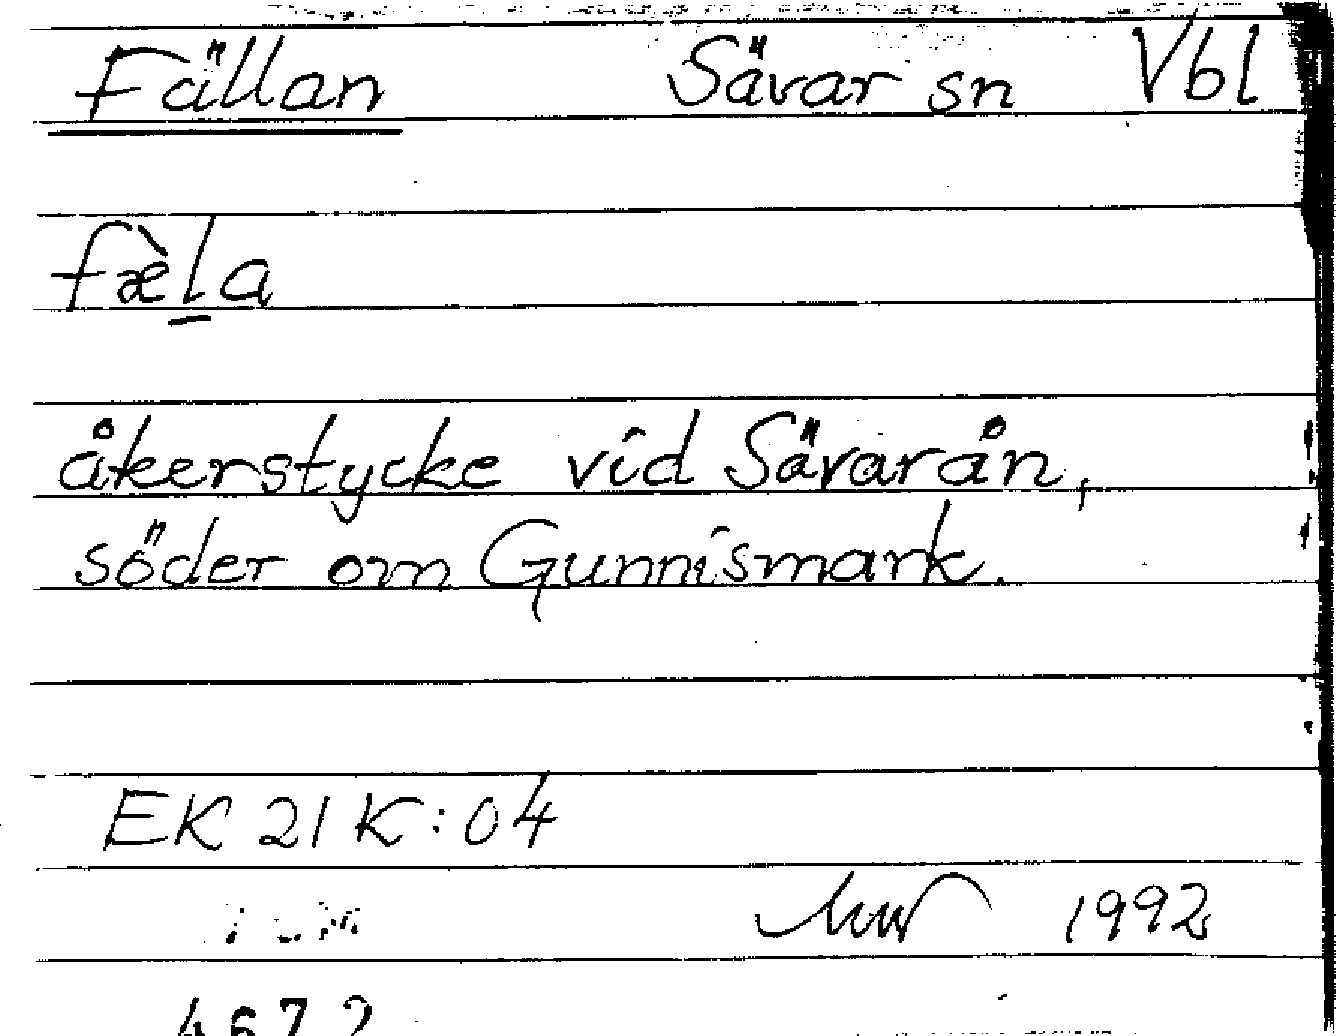 Fällan Sävar sn Vbl
fæ̀l̲a
åkerstycke vid Sävarån,
söder om Gunnismark.
EK 21 K:04
1992
4672